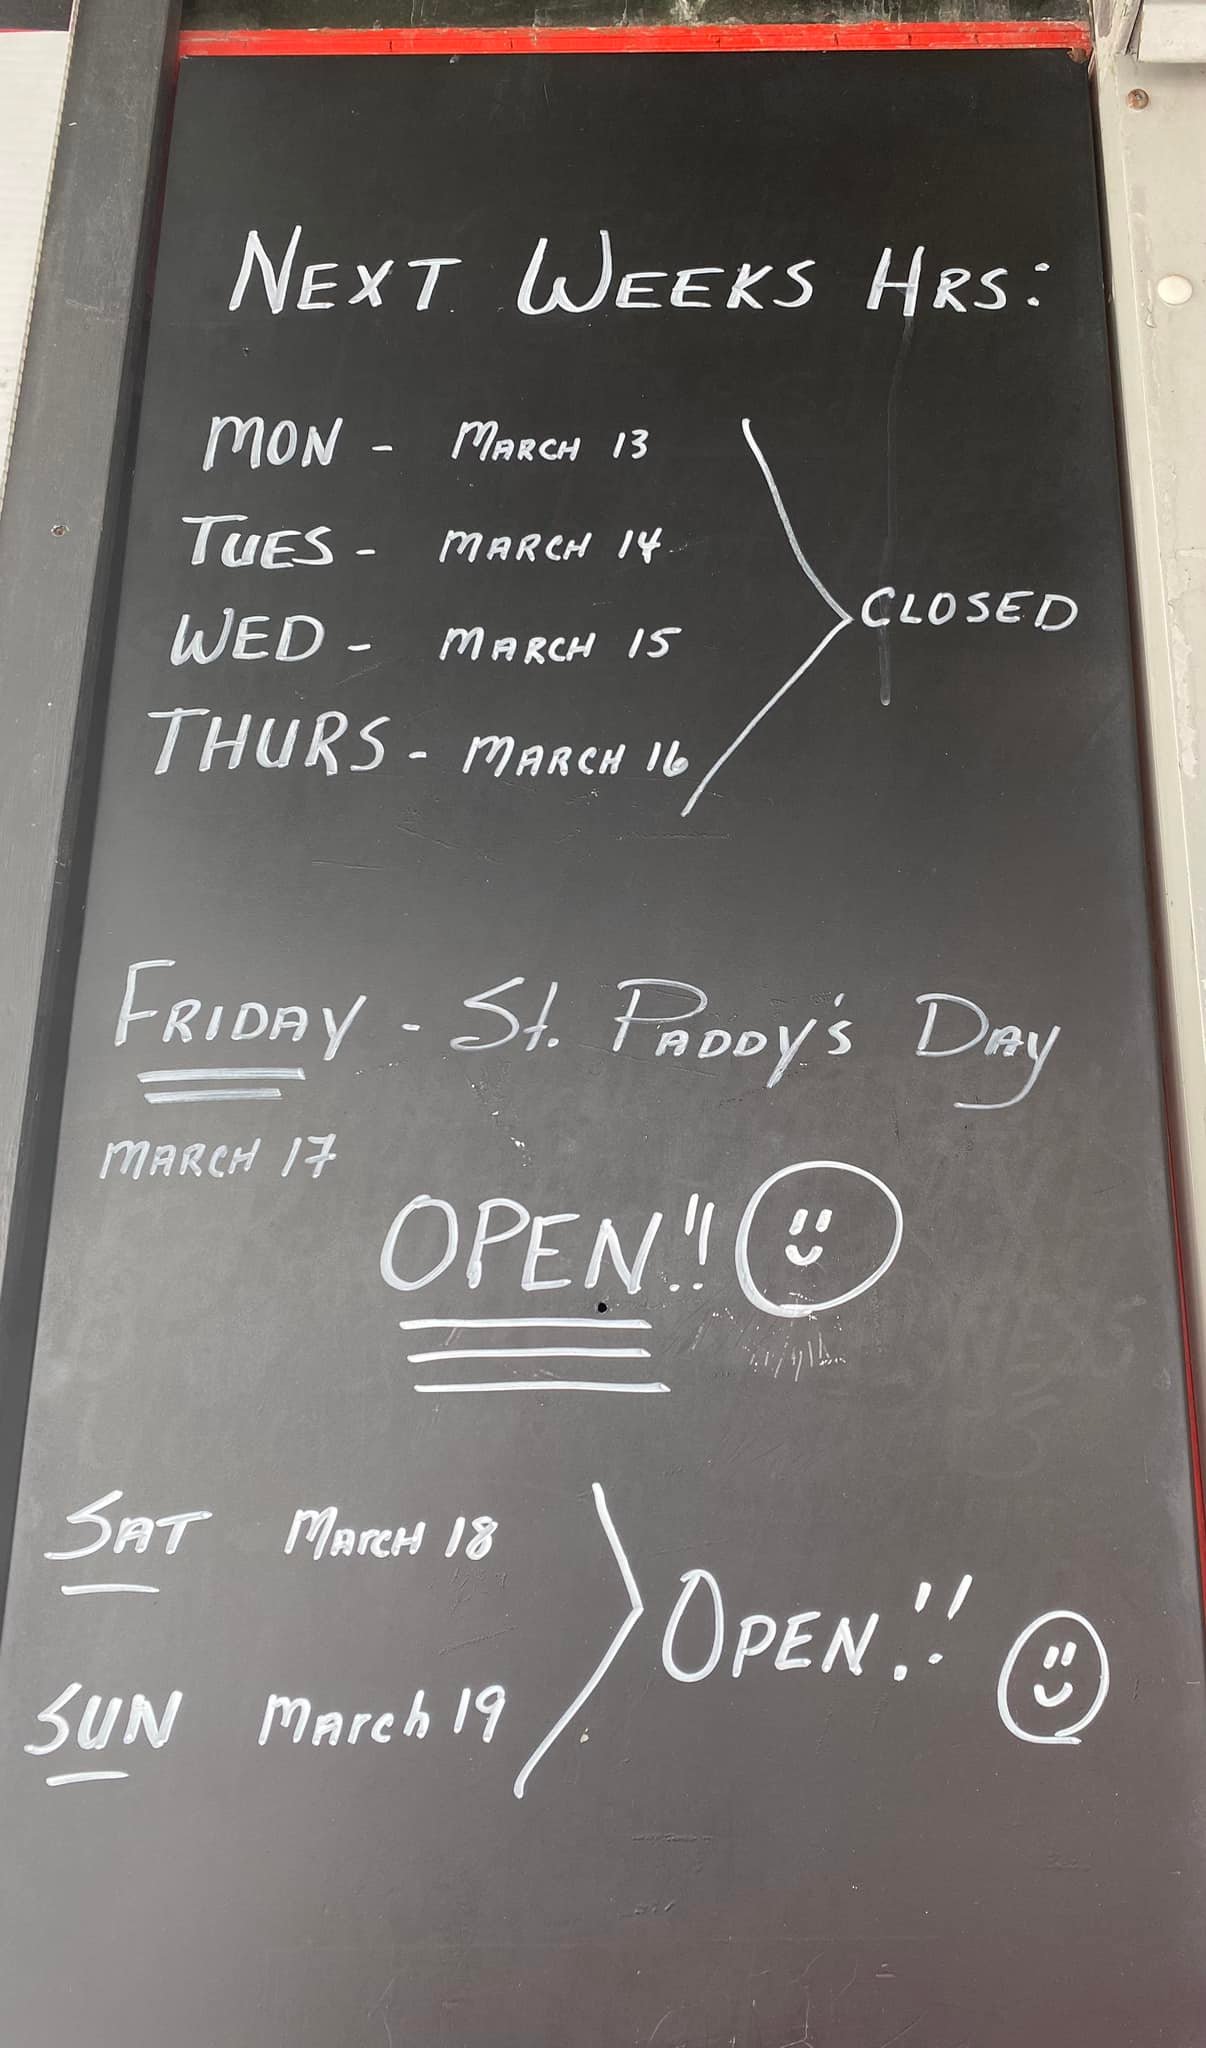 NEXT WEEKS HRS:
MON - MARCH 13
TUES - MARCH 14
WED - MARCH 15
THURS - MARCH 16
CLOSED
FRIDAY - St. PADDY'S DAY
MARCH 17
OPEN!!
SAT MARCH 18
SUN March 19
OPEN!!